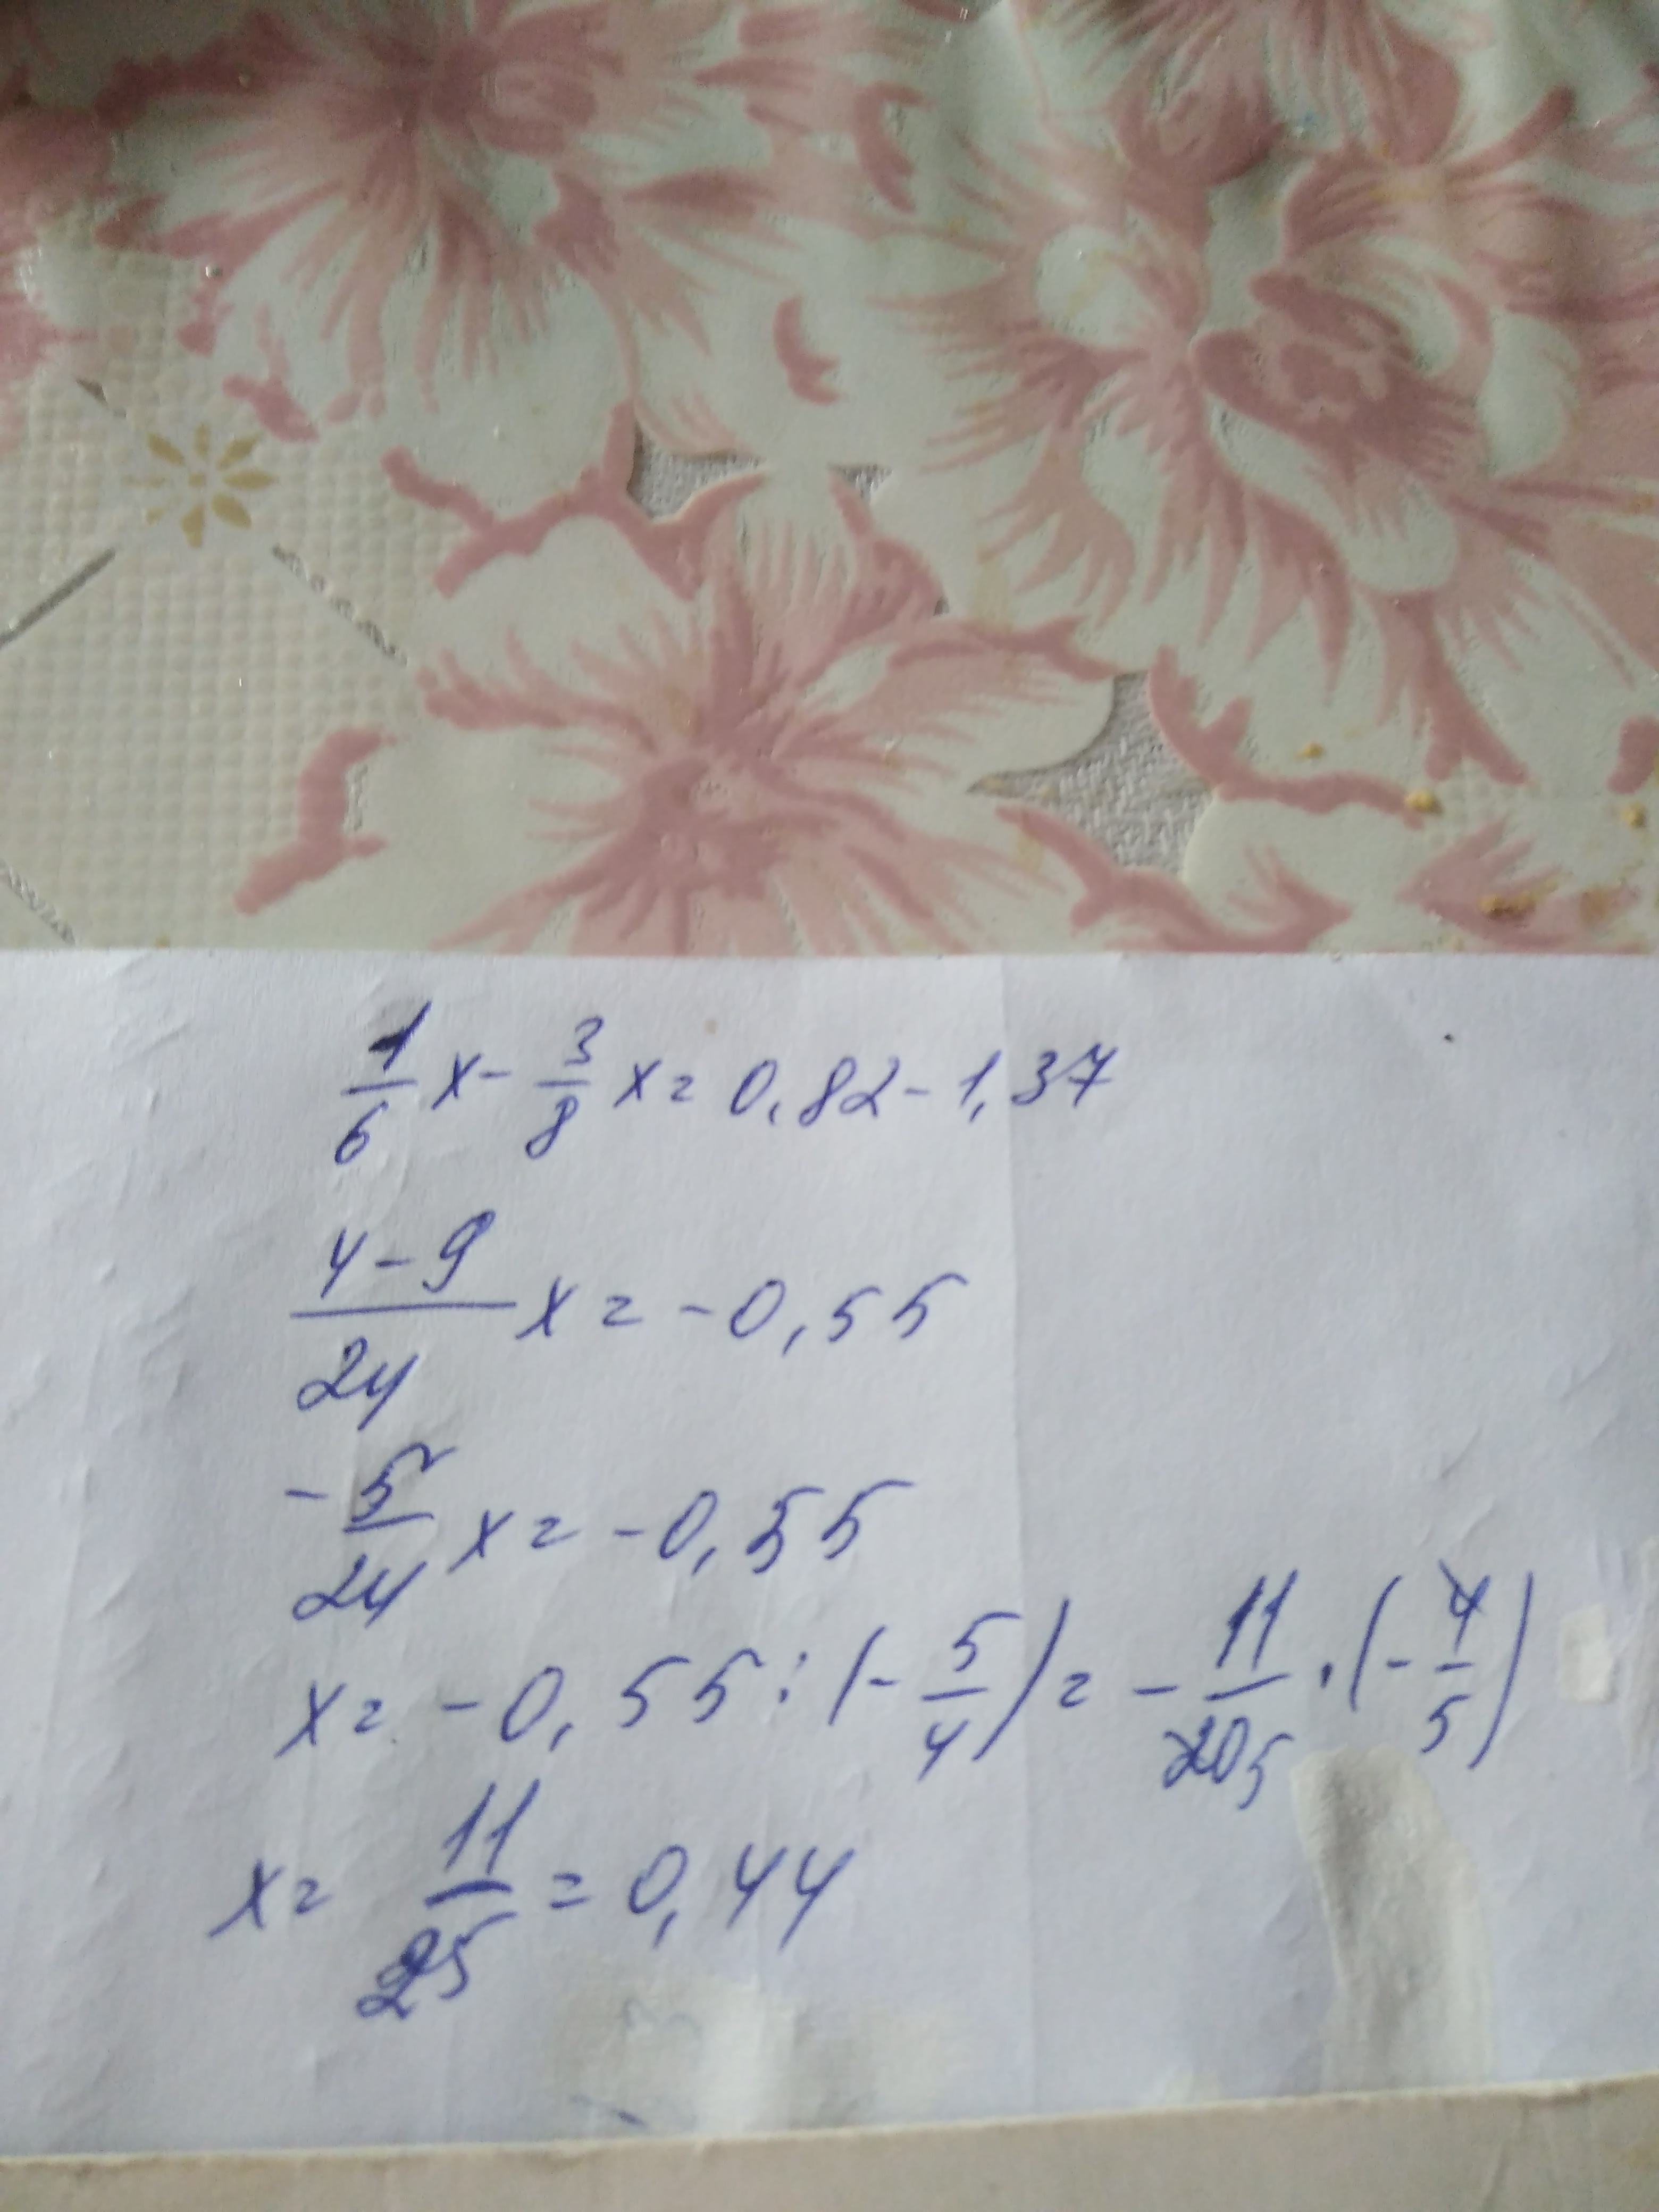 1/6 x - 3/8 x = 0,82 - 1,37
4-9/24 x = -0,55
-5/24 x = -0,55
x = -0,55 : (-5/4) = -11/20 5 · (-4/5)
x = 11/25 = 0,44